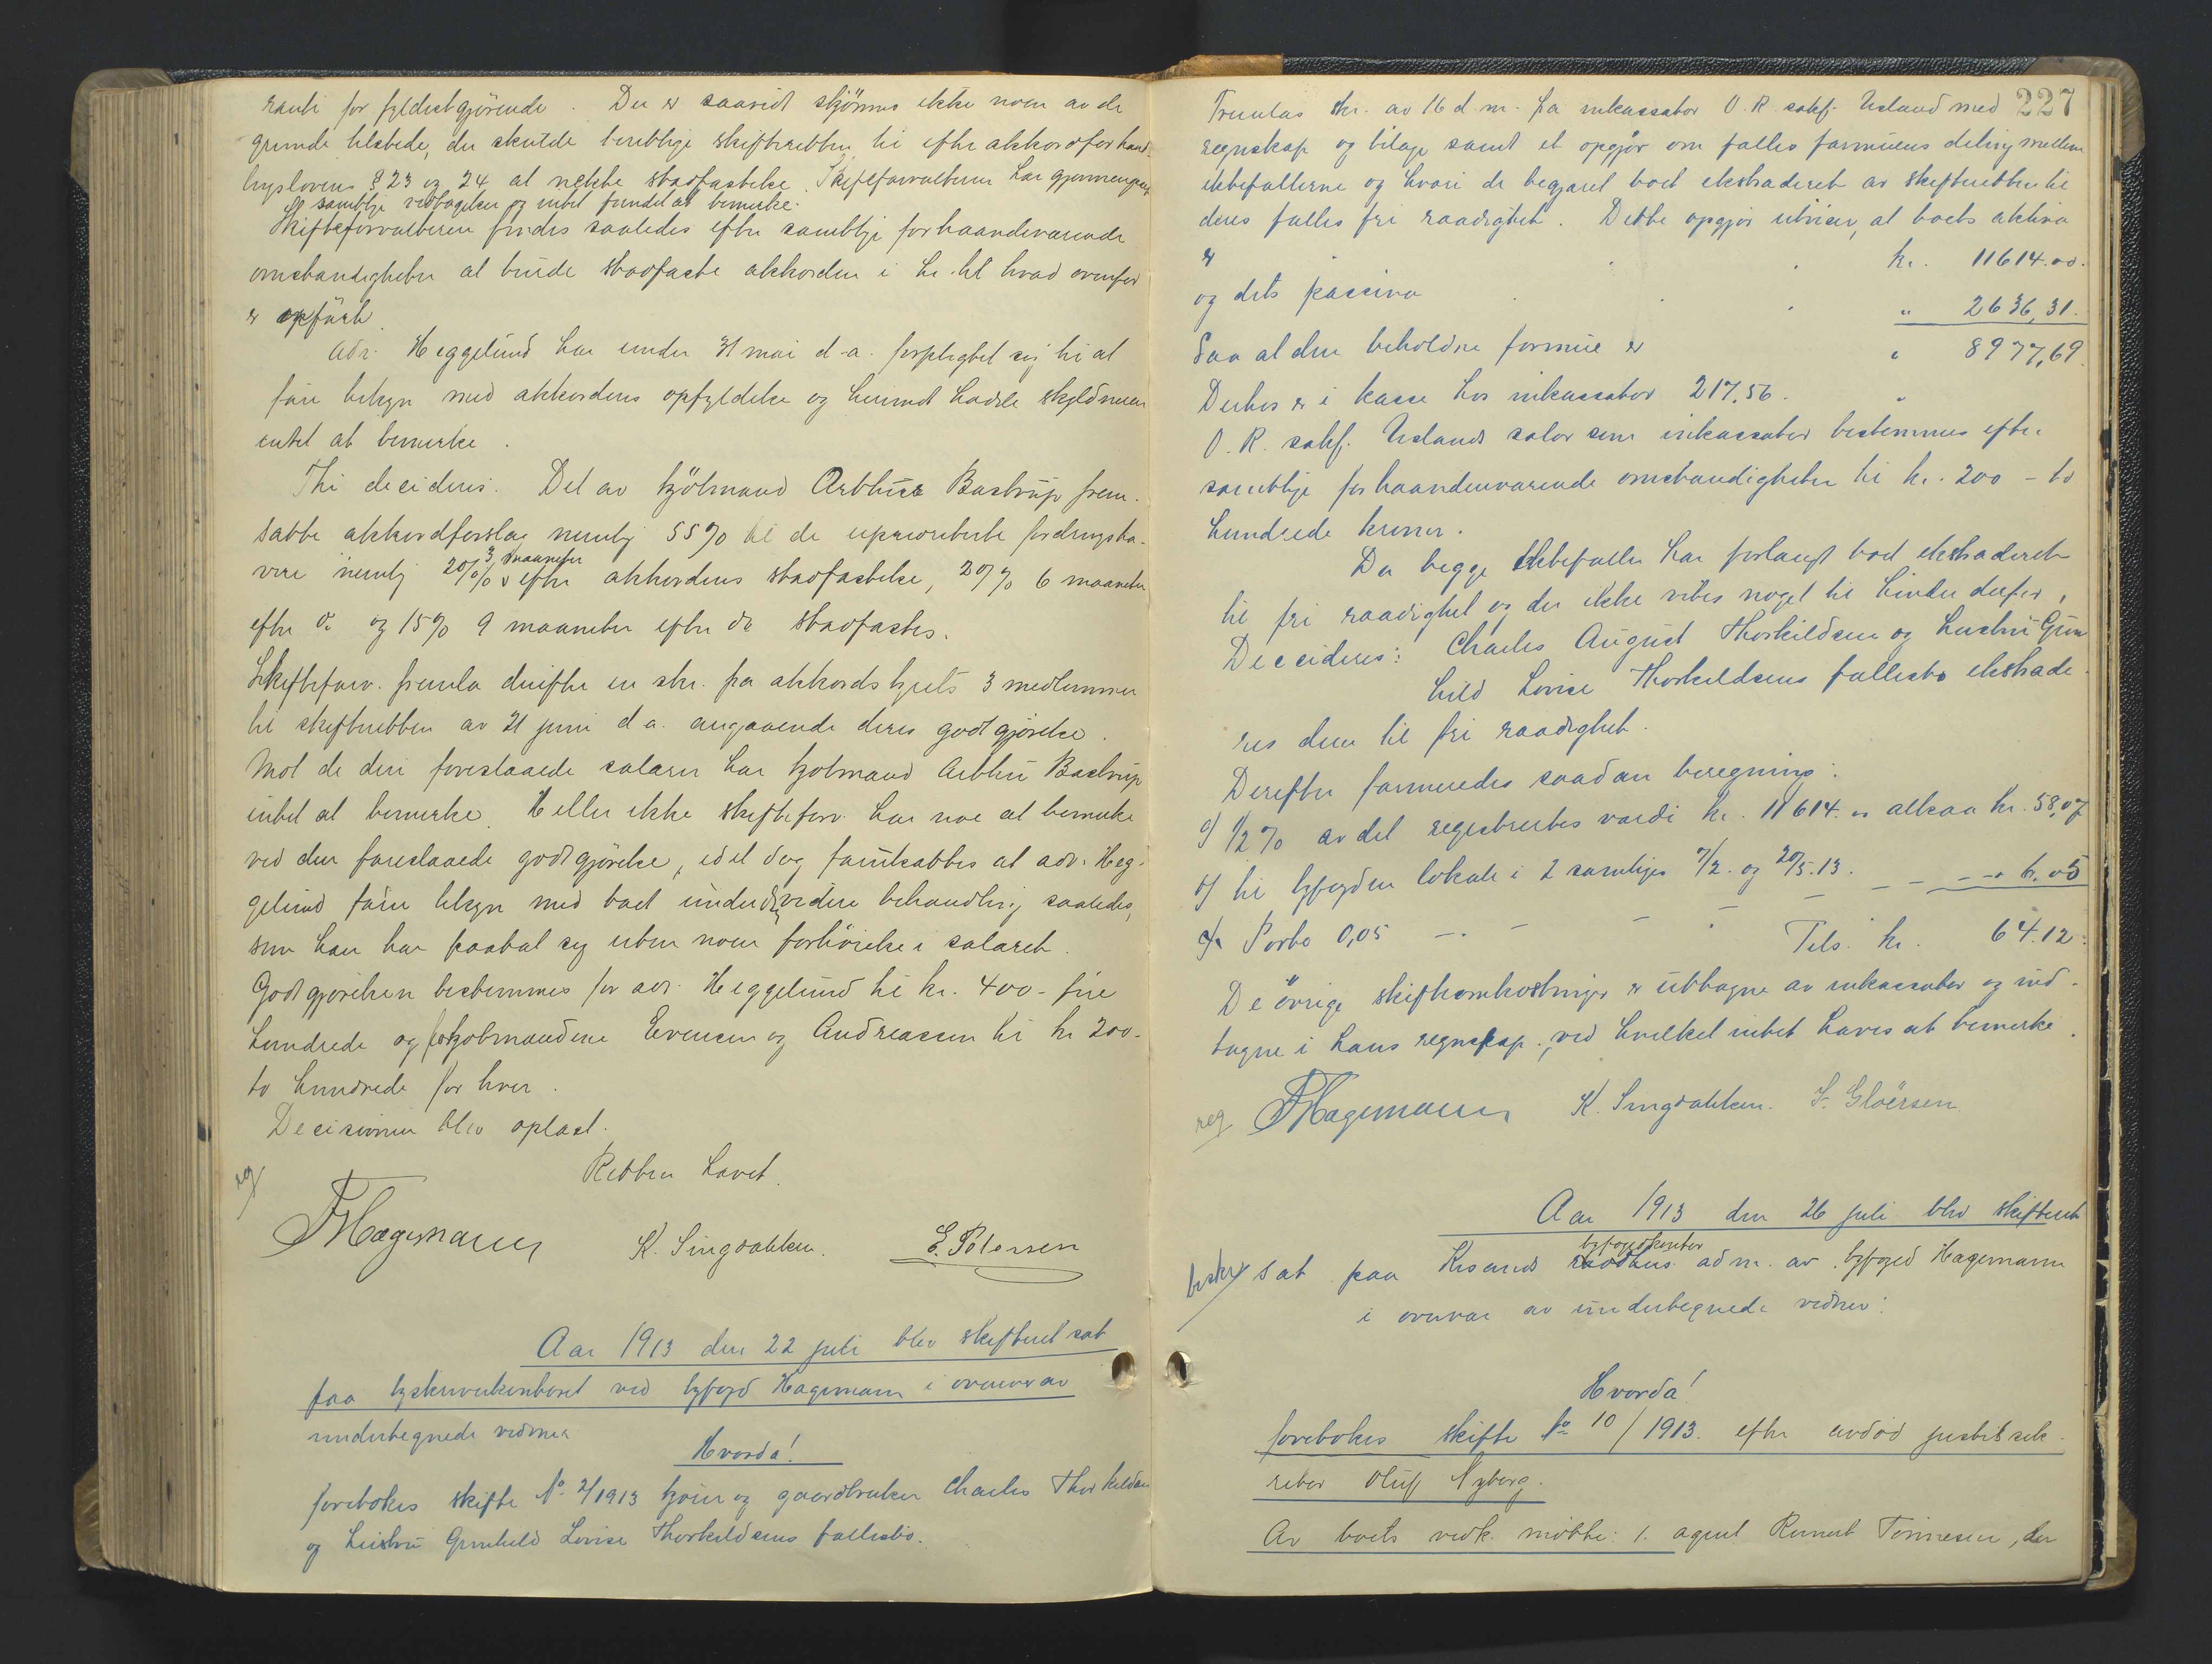 ranti for fyldestgjörende. Der er saavidt skjönnes ikke noen av de
grunde tilstede, der skulde berettige skifteretten til efter akkordforhand-
lingslovens § 23 og 24 at nekte stadfæstelse. Skifteforvalteren har gjennemgaat
samtlige vedtagelser og intet fundet at bemerke.
Skifteforvalteren findes saaledes efter samtlige forhaandenværende
omstændigheter at burde stadfæste akkorden i h. til hvad ovenfor
er opfört.
Adv. Heggelund har under 31 mai d.a. forpligtet sig til at
före tilsyn med akkordens opfyldelse og herimot hadde skyldneren
intet at bemerke.
Thi decideres: Det av kjöbmand Arthur Bastrup frem-
satte akkordforslag nemlig 55% til de uprioriterte fordringsha-
vere nemlig 20% 3 maaneder efter akkordens stadfæstelse, 20% 6 maaneder
efter do og 15% 9 maaneder efter do stadfæstes.
Skifteforv. fremla derefter en skr. fra akkordstyrets 3 medlemmer
til skifteretten av 21 juni d.a. angaaende deres godtgjörelse.
Mot de deri foreslaaede salærer har kjöbmand Arthur Bastrup
intet at bemerke. Heller ikke skifteforv. har noe at bemerke
ved den foreslaaede godtgjörelse, idet dog forutsættes at adv. Heg-
gelund förer tilsyn med boet under dets videre behandling saaledes,
som han har paatat sig uten noen forhöielse i salæret.
Godtgjörelsen bestemmes for adv. Heggelund til kr. 400 - fire
hundrede og for kjöbmændene Evensen og Andreassen til kr 200-
to hundrede for hver.
Decisionen blev oplæst.
Retten hævet.
reg
Hagemann K. Singdahlsen. E. Petersen
Aar 1913 den 22 juli blev skifteret sat
paa byskriverkontoret ved byfoged Hagemann i overvær av
undertegnede vidner
Hvorda!
foretokes skifte No 2/1913 kjöier og gaardbruker Charles Thorkildsen
og hustru Gunhild Lovise Thorkildsens fællesbo.
227
Fremlas skr. av 16 d.m. fra inkassator O. R. sakf. Usland med
regnskap og bilage samt et opgjör om fælles formuens deling mellem
ektefællerne og hvori de begjæret boet ekstraderet av skifteretten til
deres fælles fri raadighet. Dette opgjör utviser, at boets aktiva
er kr. 11614.00.
og dets passiva " 2636,31.
Saa at den beholdne formue er " 8977,69
Derhos er i kasse hos inkassator 217.56.
O. R. sakf. Uslands salær som inkassator bestemmes efter
samtlige forhaandenværende omstændigheter til kr. 200 - to
hundrede kroner.
Da begge ektefæller har forlangt boet ekstraderet
til fri raadighet og der ikke vites noget til hinder derfor,
Decideres: Charles August Thorkildsen og hustru Gun
hild Lovise Thorkildsens fællesbo ekstrade
res dem til fri raadighet.
Derefter formeredes saadan beregning:
a) 1/2 % av det registrertes værdi kr. 11614.00 altsaa kr. 58,07
b) til byfogden lokale i 2 samlinger 7/2. og 20/5.13. - - - 6.00
c) Porto 0,05 - - - - - 05
Tils. kr. 64.12.
De övrige skifteomkostninger er uttagne av inkassator og ind-
tagne i hans regnskap, ved hvilket intet haves at bemerke.
reg Hagemann K. Singdahlsen. F. Gloërsen.
Aar 1913 den 26 juli blev skifteret
beskr sat paa Krsands raadhus byfogdkontor adm. av byfoged Hagemann
i overvær av undertegnede vidner:
Hvorda!
foretokes skifte No 10/1913. efter avdöd justitssek-
retær Oluf Nyborg.
Av boets vedk. mötte: 1. agent Reinert Tönnesen, der